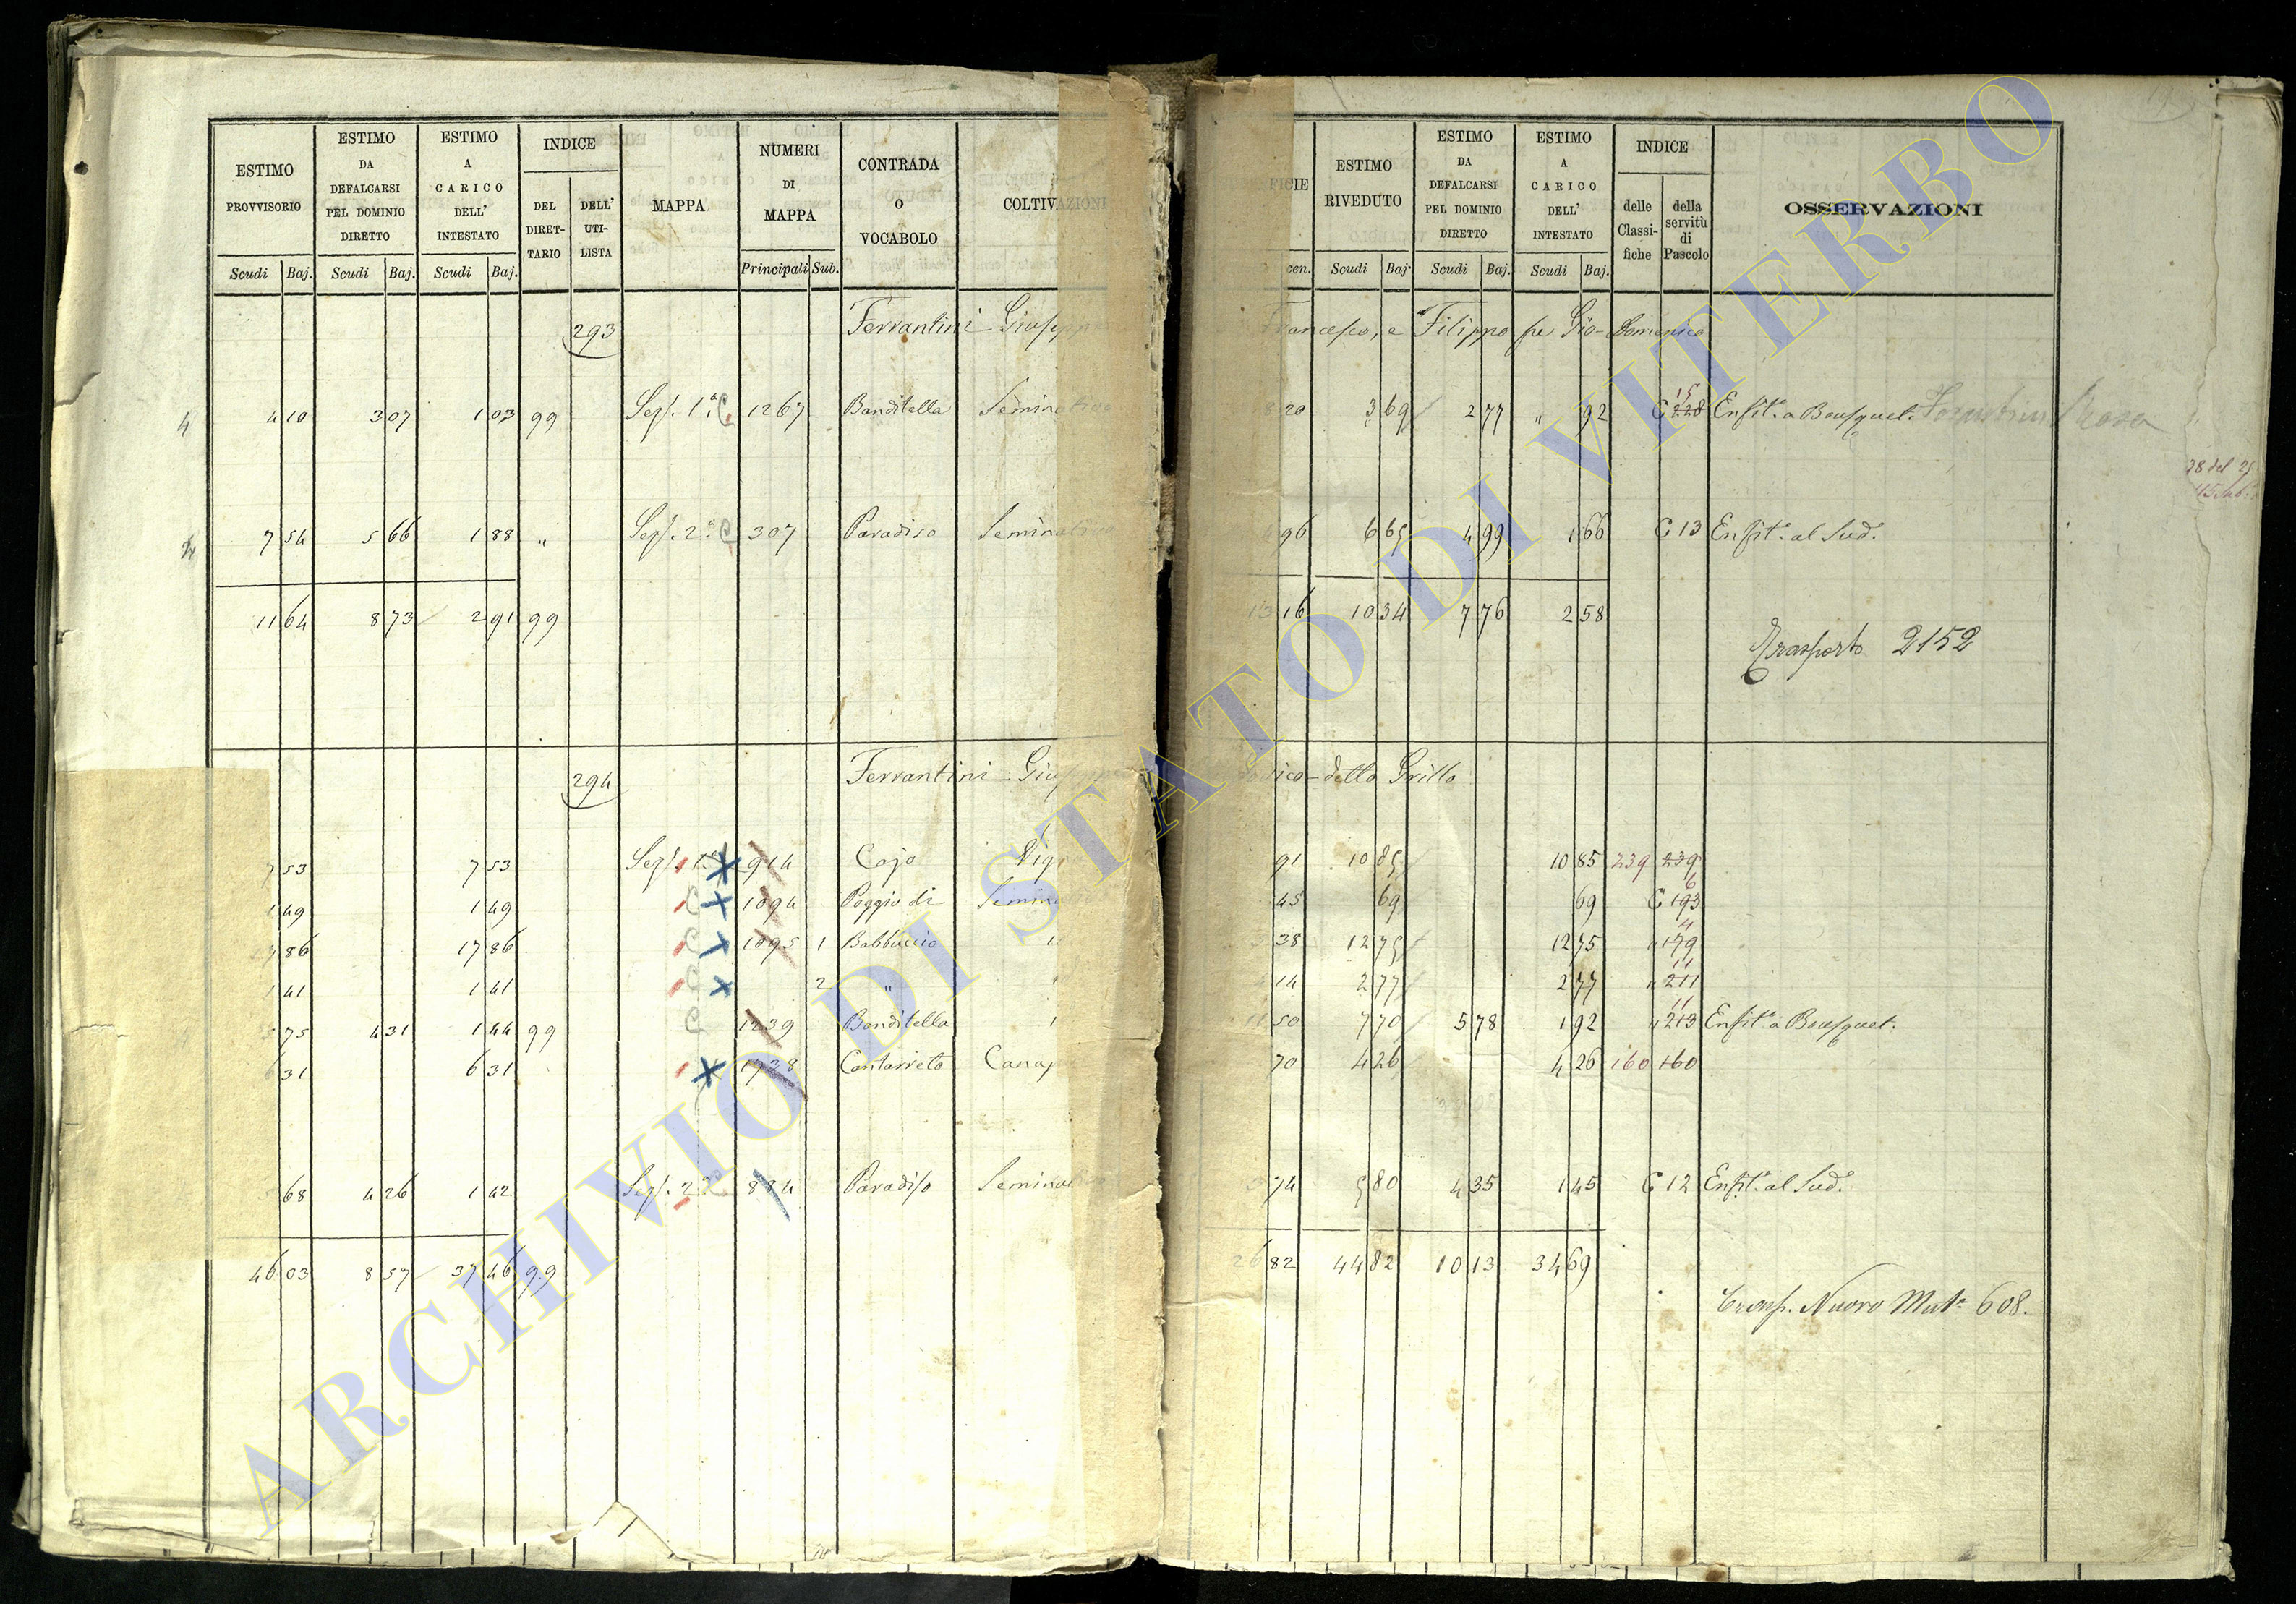 ESTIMO PROVVISORIO Scudi Baj. ESTIMO DA DEFALCARSI PEL DOMINIO DIRETTO Scudi Baj. ESTIMO A CARICO DELL' INTESTATO Scudi Baj. INDICE DEL DIRET-TARIO DELL' UTI-LISTA MAPPA NUMERI DI MAPPA Principali Sub. CONTRADA O VOCABOLO COLTIVAZIONI FICIE cen. ESTIMO RIVEDUTO Scudi Baj. ESTIMO DA DEFALCARSI PEL DOMINIO DIRETTO Scudi Baj. ESTIMO A CARICO DELL' INTESTATO Scudi Baj. INDICE delle Classi-fiche della servitù di Pascolo OSSERVAZIONI
293 Ferrantini Giuseppe Francesco, e Filippo fu Gio-Domenico
4 4 10 3 07 1 03 99 Sez. 1ª 1267 Banditella Seminativo 8 20 3 69 2 77 " 92 C 228 15 Enfit.ª a Bousquet.
28 del 25
4 7 54 5 66 1 88 " Sez. 2ª 307 Paradiso Seminativo 4 96 6 65 4 99 1 66 C 13 Enfit.ª al Sud.º
11 64 8 73 2 91 99 13 16 10 34 7 76 2 58
Trasporto 2152
294 Ferrantini Giuseppe detto Grillo
7 53 7 53 Sez. 1ª 914 Cajo Vig 91 10 85 10 85 239 239
1 49 1 49 1094 Poggio di Semina 45 69 69 C 193 6
17 86 17 86 1095 1 Babbuccio 38 12 75 12 75 " 179 4
1 41 1 41 2 " 14 2 77 2 77 " 211 11
5 75 4 31 1 44 99 1239 Banditella 11 50 7 70 5 78 1 92 " 213 11 Enfit.ª a Bousquet.
6 31 6 31 1728 Cantarreto Canap 70 4 26 4 26 160 160
5 68 4 26 1 42 Sez. 2ª 834 Paradiso Seminativo 74 5 80 4 35 1 45 C 12 Enfit.ª al Sud.º
46 03 8 57 37 46 99 26 82 44 82 10 13 34 69
Trasp. Nuovo Mutª 608.
ARCHIVIO DI STATO DI VITERBO